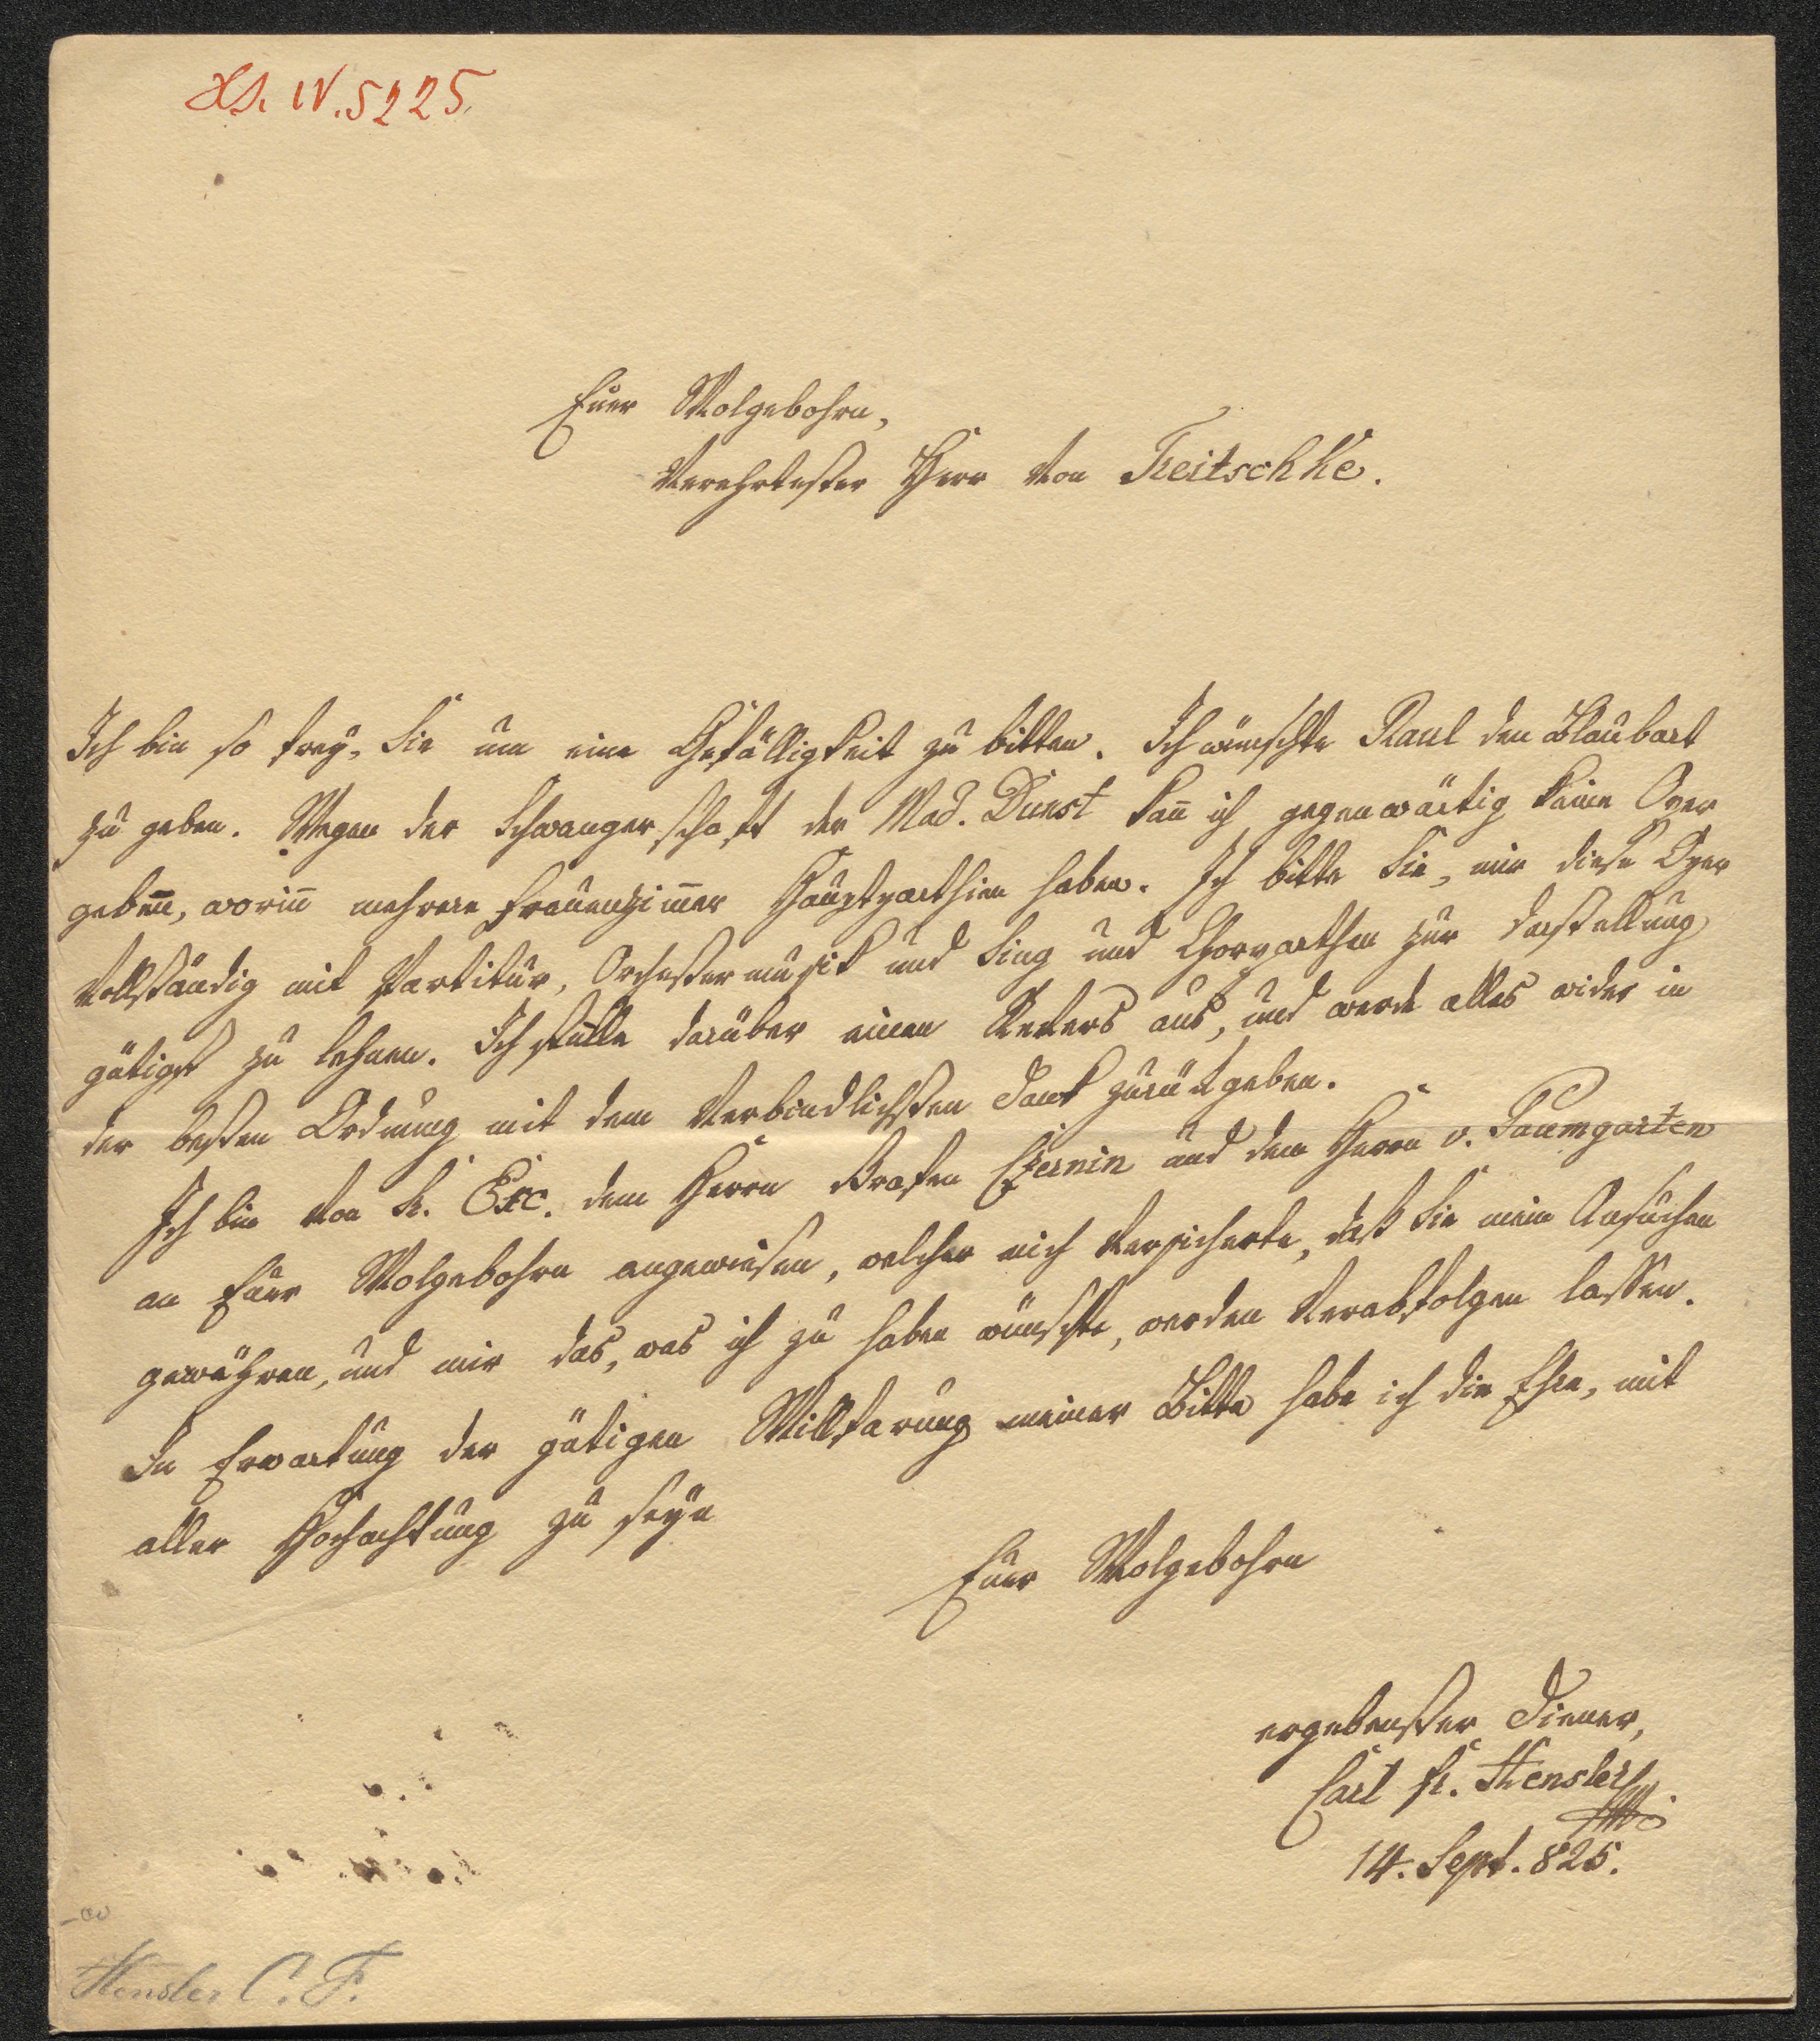 Hs. IV. 5225.
Euer Wolgebohrn,
Verehrtester Herr von Treitschke.
Ich bin so frey, Sie um eine Gefälligkeit zu bitten. Ich wünschte Raul den Blaubart
zu geben. Wegen der Schwangerschaft der Mad. Dunst kan̄ ich gegenwärtig keine Oper
geben, worin̄ mehrere Frauenzim̄er Hauptparthien haben. Ich bitte Sie, mir diese Oper
vollständig mit Partitur, Orchestermusik und Sing und Chorparthen zur Darstellung
gütigst zu lehnen. Ich stelle darüber einen Revers aus, und werde alles wider in
der besten Ordnung mit dem verbindlichsten Dank zurükgeben.
Ich bin von Sr. Exc. dem Herrn Grafen Czernin und dem Herrn v. Baumgarten
an Euer Wolgebohrn angewiesen, welcher mich versicherte, daß Sie mein Ansuchen
gewähren, und mir das, was ich zu haben wünschte, werden verabfolgen lassen.
In Erwartung der gütigen Willfarung meiner Bitte habe ich die Ehre, mit
aller Hochachtung zu seyn
Euer Wolgebohrn
ergebenster Diener,
Carl Fr. Hensler
14. Sept. 825.
Hensler C. F.